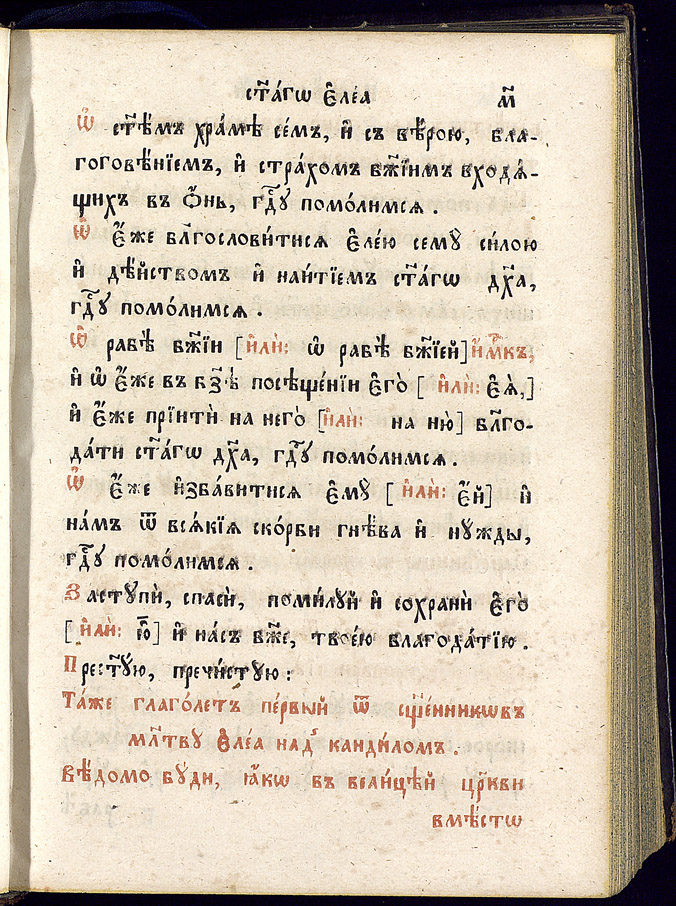 ст҃а́гѡ є҆ле́а м҃
Ѡ҆ ст҃ѣ́мъ хра́мѣ се́мъ, и҆ съ вѣ́рою, бла-
гоговѣ́нїемъ, и҆ стра́хомъ бж҃їимъ входѧ́-
щихъ въ ѻ҆́нь, гдⷭ҇ꙋ помо́лимсѧ.
Ѡ҆ є҆́же бл҃гослови́тисѧ є҆ле́ю семꙋ̀ си́лою
и҆ дѣ́йствомъ и҆ наи́тїемъ ст҃а́гѡ дх҃а,
гдⷭ҇ꙋ помо́лимсѧ.
Ѡ҆ рабѣ̀ бж҃їи [и҆лѝ: ѡ҆ рабѣ̀ бж҃їей] и҆́м҃къ,
и҆ ѡ҆ є҆́же въ бз҃ѣ посѣще́нїи є҆гѡ̀ [и҆лѝ: є҆ѧ̀,]
и҆ є҆́же прїитѝ на него̀ [и҆лѝ: на ню̀] бл҃го-
да́ти ст҃а́гѡ дх҃а, гдⷭ҇ꙋ помо́лимсѧ.
Ѡ҆ є҆́же и҆зба́витисѧ є҆мꙋ̀ [и҆лѝ: є҆́й] и҆
на́мъ ѿ всѧ́кїѧ ско́рби гнѣ́ва и҆ нꙋ́жды,
гдⷭ҇ꙋ помо́лимсѧ.
Застꙋпѝ, спасѝ, поми́лꙋй и҆ сохранѝ є҆го̀
[и҆лѝ: ю҆̀] и҆ на́съ бж҃е, твое́ю благода́тїю.
Прест҃ꙋ́ю, пречи́стꙋю:
Та́же глаго́летъ пе́рвый ѿ сщ҃е́нникѡвъ
мл҃твꙋ є҆ле́а над̾ канди́ломъ.
Вѣ́домо бꙋ́ди, ꙗ҆́кѡ въ вели́цѣй цр҃кви
вмѣ́стѡ